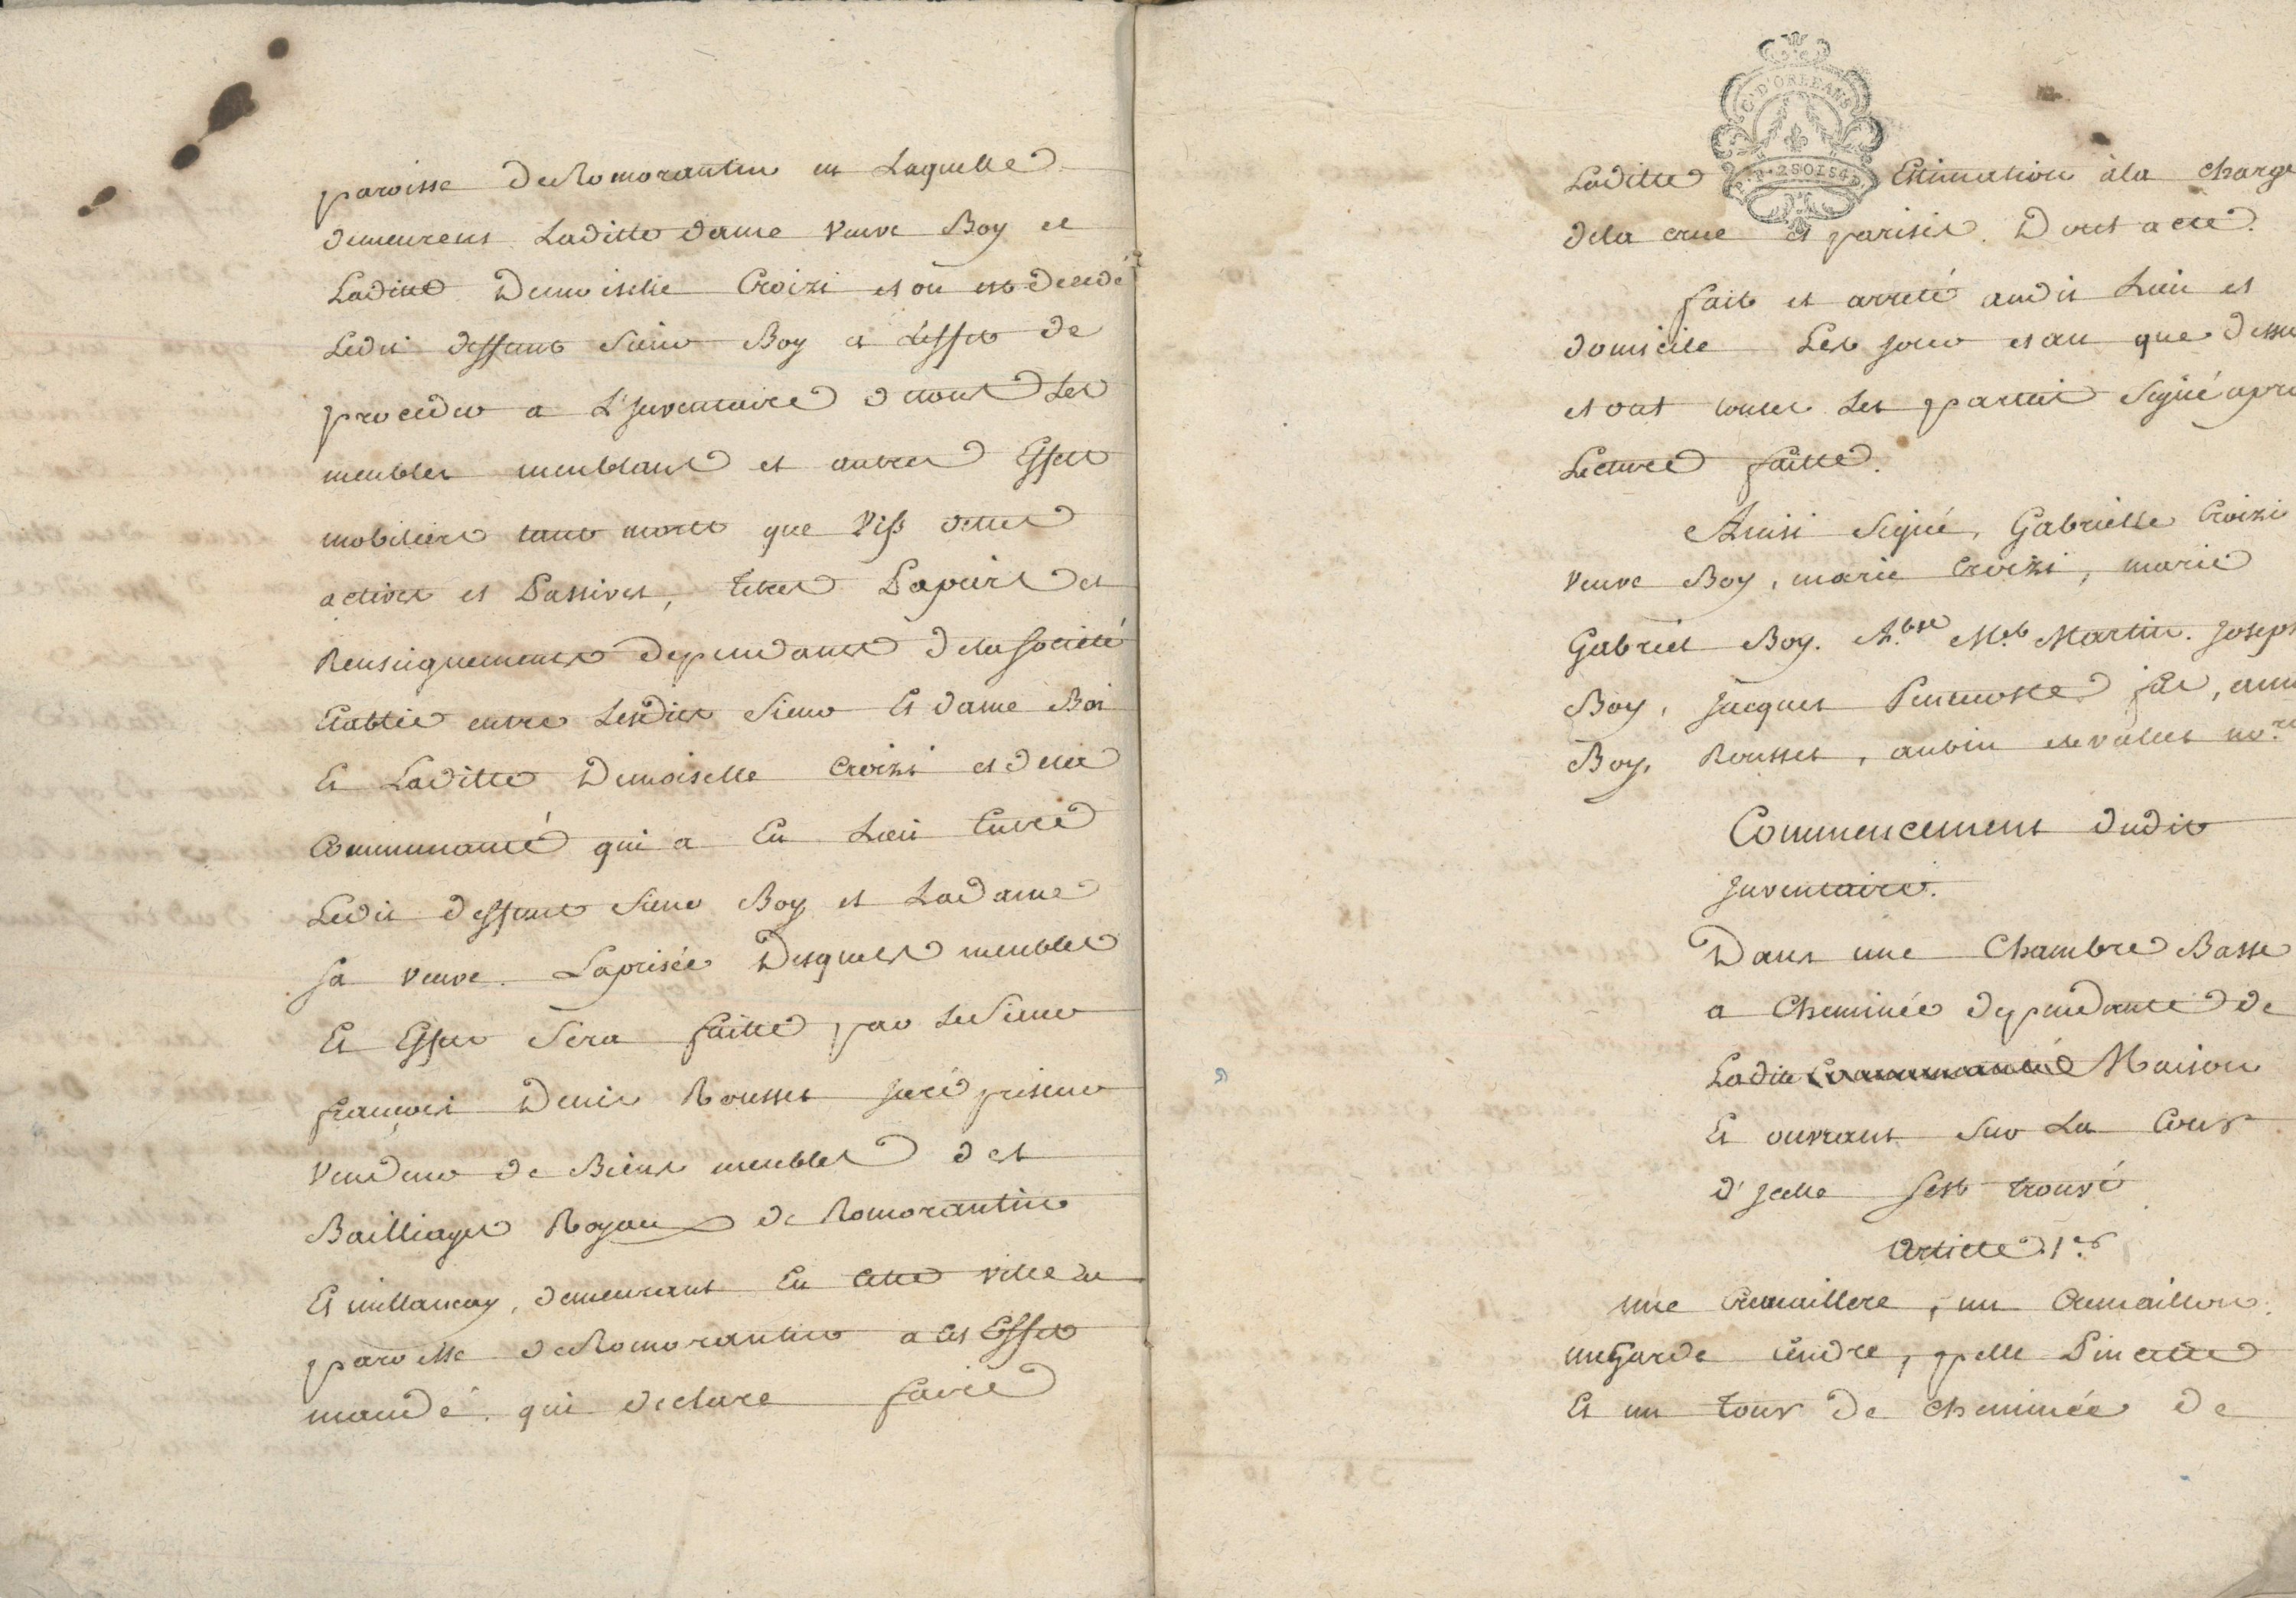 paroisse de Romorantin en Laquelle
demeurent Laditte dame veuve Boy et
Laditte Demoiselle Croizi et ou est decedé
Ledit deffunt Sieur Boy a L'effet de
proceder a L'Inventaire de tous Les
meubles meublans et autres Effets
mobiliers tant morts que vifs dettes
actives et Passives, titres Papiers et
Renseignements dependants de la Société
Etablie entre Lesdits Sieur Et dame Boi
Et Laditte Demoiselle Croizi et de la
Communauté qui a Eu Lieu Entre
Ledit deffunt Sieur Boy et La dame
sa veuve. La prisée Desquels meubles
Et Effets Sera faitte par Le Sieur
françois Denis Rousset juré priseur
vendeur de Biens meubles des
Bailliages Royaux de Romorantin
Et millancay, demeurant En cette ville et
paroisse de Romorantin a cet Effet
mandé, qui declare faire
C. D'ORLEANS
Laditte Estimation a la charge
de la crue et parisis. Dont acte.
fait et arreté audit Lieu et
domicile Les jour et an que dessus
et ont toutes Les parties Signé apres
Lecture faitte.
Ainsi Signé, Gabrielle Croizi
veuve Boy, marie Croizi, marie
Gabriel Boy. Martin. Joseph
Boy, Jacques fils,
Boy, Rousset, aubin no.res
Commencement dudit
Inventaire.
Dans une Chambre Basse
a Cheminée dependante de
Ladite Communauté Maison
Et ouvrant Sur La Cour
d'Icelle s'est trouvé
Article 1er
une Cremaillere, un Cremaillon,
un Garde cendre, pelle Pincette
Et un tour de cheminée de